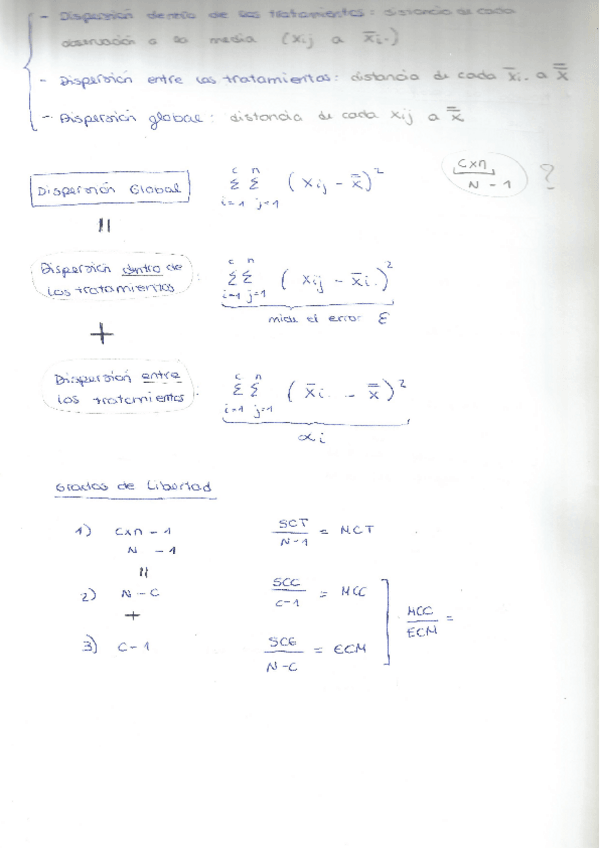 - Dispersión dentro de los tratamientos: distancia de cada
observación a su media (xij a x̄i.)
- Dispersión entre los tratamientos: distancia de cada x̄i. a x̿
- Dispersión global: distancia de cada xij a x̿
Dispersión Global Σ(i=1, c) Σ(j=1, n) (xij - x̿)² cxn / N - 1 ?
||
Dispersión dentro de
los tratamientos : Σ(i=1, c) Σ(j=1, n) (xij - x̄i.)²
mide el error ε
+
Dispersión entre
los tratamientos : Σ(i=1, c) Σ(j=1, n) (x̄i. - x̿)²
αi
Grados de Libertad
1) cxn - 1 SCT / N-1 = MCT
N - 1
||
2) N - C SCC / C-1 = MCC
+
3) C - 1 SCE / N-C = ECM
MCC / ECM =